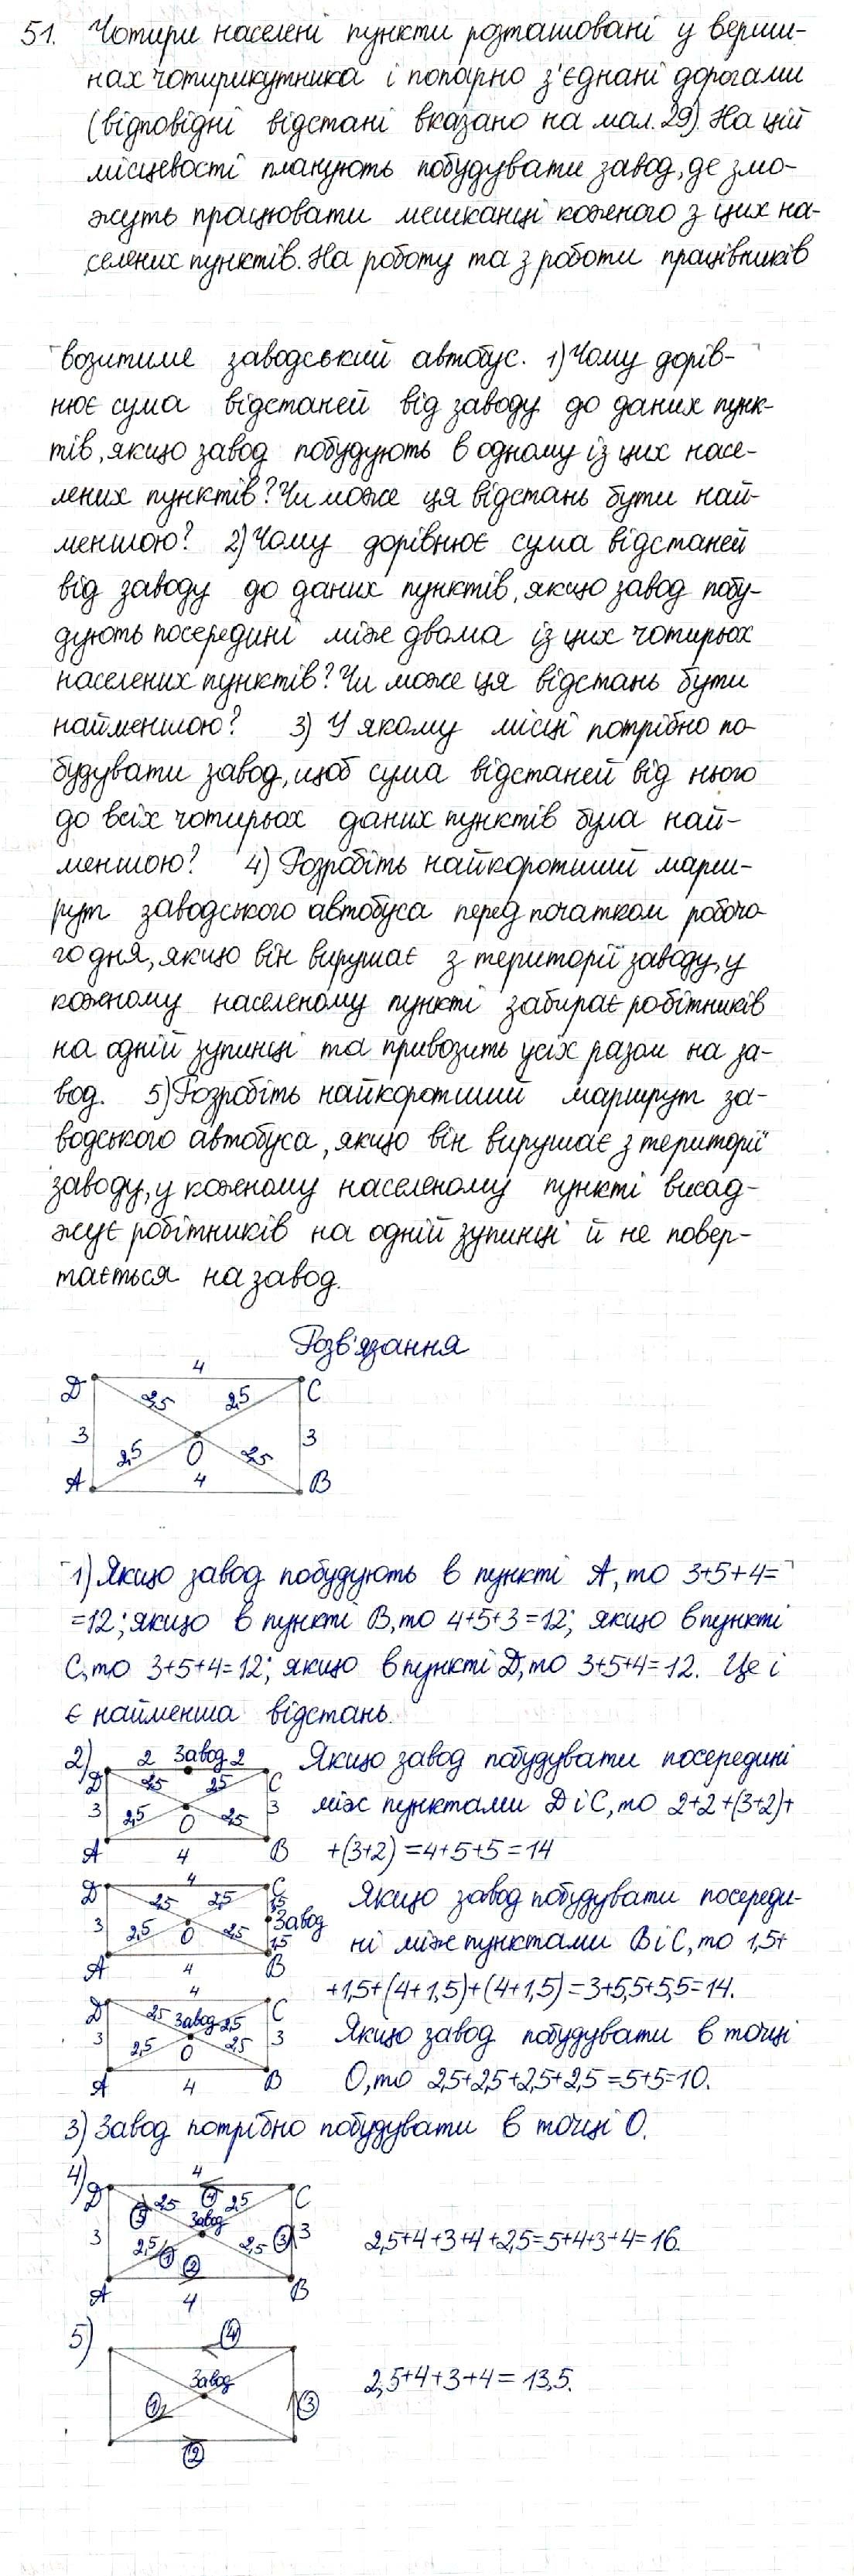 51. Чотири населені пункти розташовані у верши-
нах чотирикутника і попарно з'єднані дорогами
(відповідні відстані вказано на мал. 29). На цій
місцевості планують побудувати завод, де змо-
жуть працювати мешканці кожного з цих на-
селених пунктів. На роботу та з роботи працівників
возитиме заводський автобус. 1) Чому дорів-
нює сума відстаней від заводу до даних пунк-
тів, якщо завод побудують в одному із цих насе-
лених пунктів? Чи може ця відстань бути най-
меншою? 2) Чому дорівнює сума відстаней
від заводу до даних пунктів, якщо завод побу-
дують посередині між двома із цих чотирьох
населених пунктів? Чи може ця відстань бути
найменшою? 3) У якому місці потрібно по-
будувати завод, щоб сума відстаней від нього
до всіх чотирьох даних пунктів була най-
меншою? 4) Розробіть найкоротший марш-
рут заводського автобуса перед початком робочо-
го дня, якщо він вирушає з території заводу, у
кожному населеному пункті забирає робітників
на одній зупинці та привозить усіх разом на за-
вод. 5) Розробіть найкоротший маршрут за-
водського автобуса, якщо він вирушає з території
заводу, у кожному населеному пункті висад-
жує робітників на одній зупинці й не повер-
тається на завод.
Розв'язання
4
D 2,5 2,5 C
3 2,5 O 2,5 3
A 4 B
1) Якщо завод побудують в пункті A, то 3+5+4=
=12; якщо в пункті B, то 4+5+3=12; якщо в пункті
C, то 3+5+4=12; якщо в пункті D, то 3+5+4=12. Це і
є найменша відстань.
2) 2 Завод 2 Якщо завод побудувати посередині
D 2,5 2,5 C
3 2,5 O 2,5 3 між пунктами D і C, то 2+2+(3+2)+
A 4 B +(3+2)=4+5+5=14
4
D 2,5 2,5 C 1,5 Якщо завод побудувати посереди-
3 2,5 O 2,5 Завод 1,5 ні між пунктами B і C, то 1,5+
A 4 B
+1,5+(4+1,5)+(4+1,5)=3+5,5+5,5=14.
4
D 2,5 Завод 2,5 C
3 2,5 O 2,5 3 Якщо завод побудувати в точці
A 4 B O, то 2,5+2,5+2,5+2,5=5+5=10.
3) Завод потрібно побудувати в точці O.
4) 4
D 5 2,5 4 2,5 C
Завод
3 2,5 1 2 2,5 3 3 2,5+4+3+4+2,5=5+4+3+4=16.
A 4 B
5) 4
Завод 2,5+4+3+4=13,5.
1 3
2